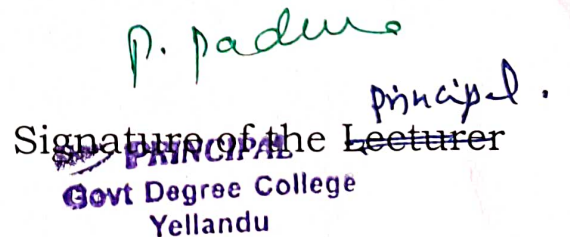 P. Padma
principal.
Signature of the Lecturer
PRINCIPAL
Govt Degree College
Yellandu